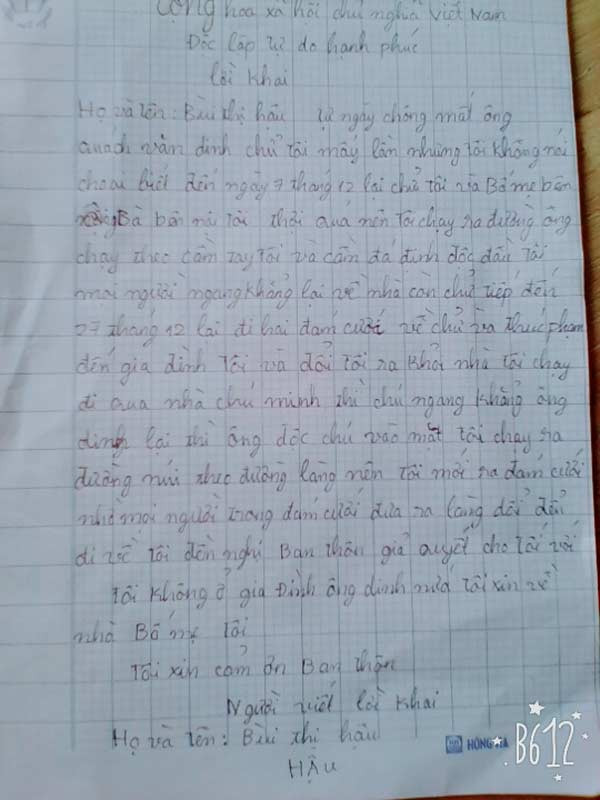 Cộng hoa xã hội chủ nghĩa Việt Nam
Độc lập tự do hạnh phúc
lời khai
Họ và tên: Bùi thị hậu từ ngày chồng mất ông
quách văn dinh chử tôi mấy lần nhưng tôi không nói
cho ai biết đến ngày 7 tháng 12 lại chử tôi và Bố mẹ bên
Bà bên nà tôi thôi quá nên tôi chạy ra đường ông
chạy theo cầm tay tôi và cầm đá đinh độc đầu tôi
mọi người ngang khẳng lại về nhà còn chử tiếp đến
27 tháng 12 lại đi hai đám cưới về chử và thưc phạm
đến gia đình tôi và đổi tôi ra khỏi nhà tôi chạy
đi qua nhà chú minh thì chú ngang khẳng ông
dinh lại thì ông độc chú vào mặt tôi chạy ra
đường núi theo đường làng nên tôi mới ra đám cưới
nhờ mọi người trong đám cưới đưa ra làng đổi đến
đi về tôi đến nghị Ban thôn giả quyết cho tôi với
tôi không ở gia Đình ông dinh nứa tôi xin về
nhà Bố mẹ tôi
Tôi xin cảm ơn Ban thôn
Người viết lời khai
Họ và tên: Bùi thị hậu
HẬU
HỒNG HÀ
B612